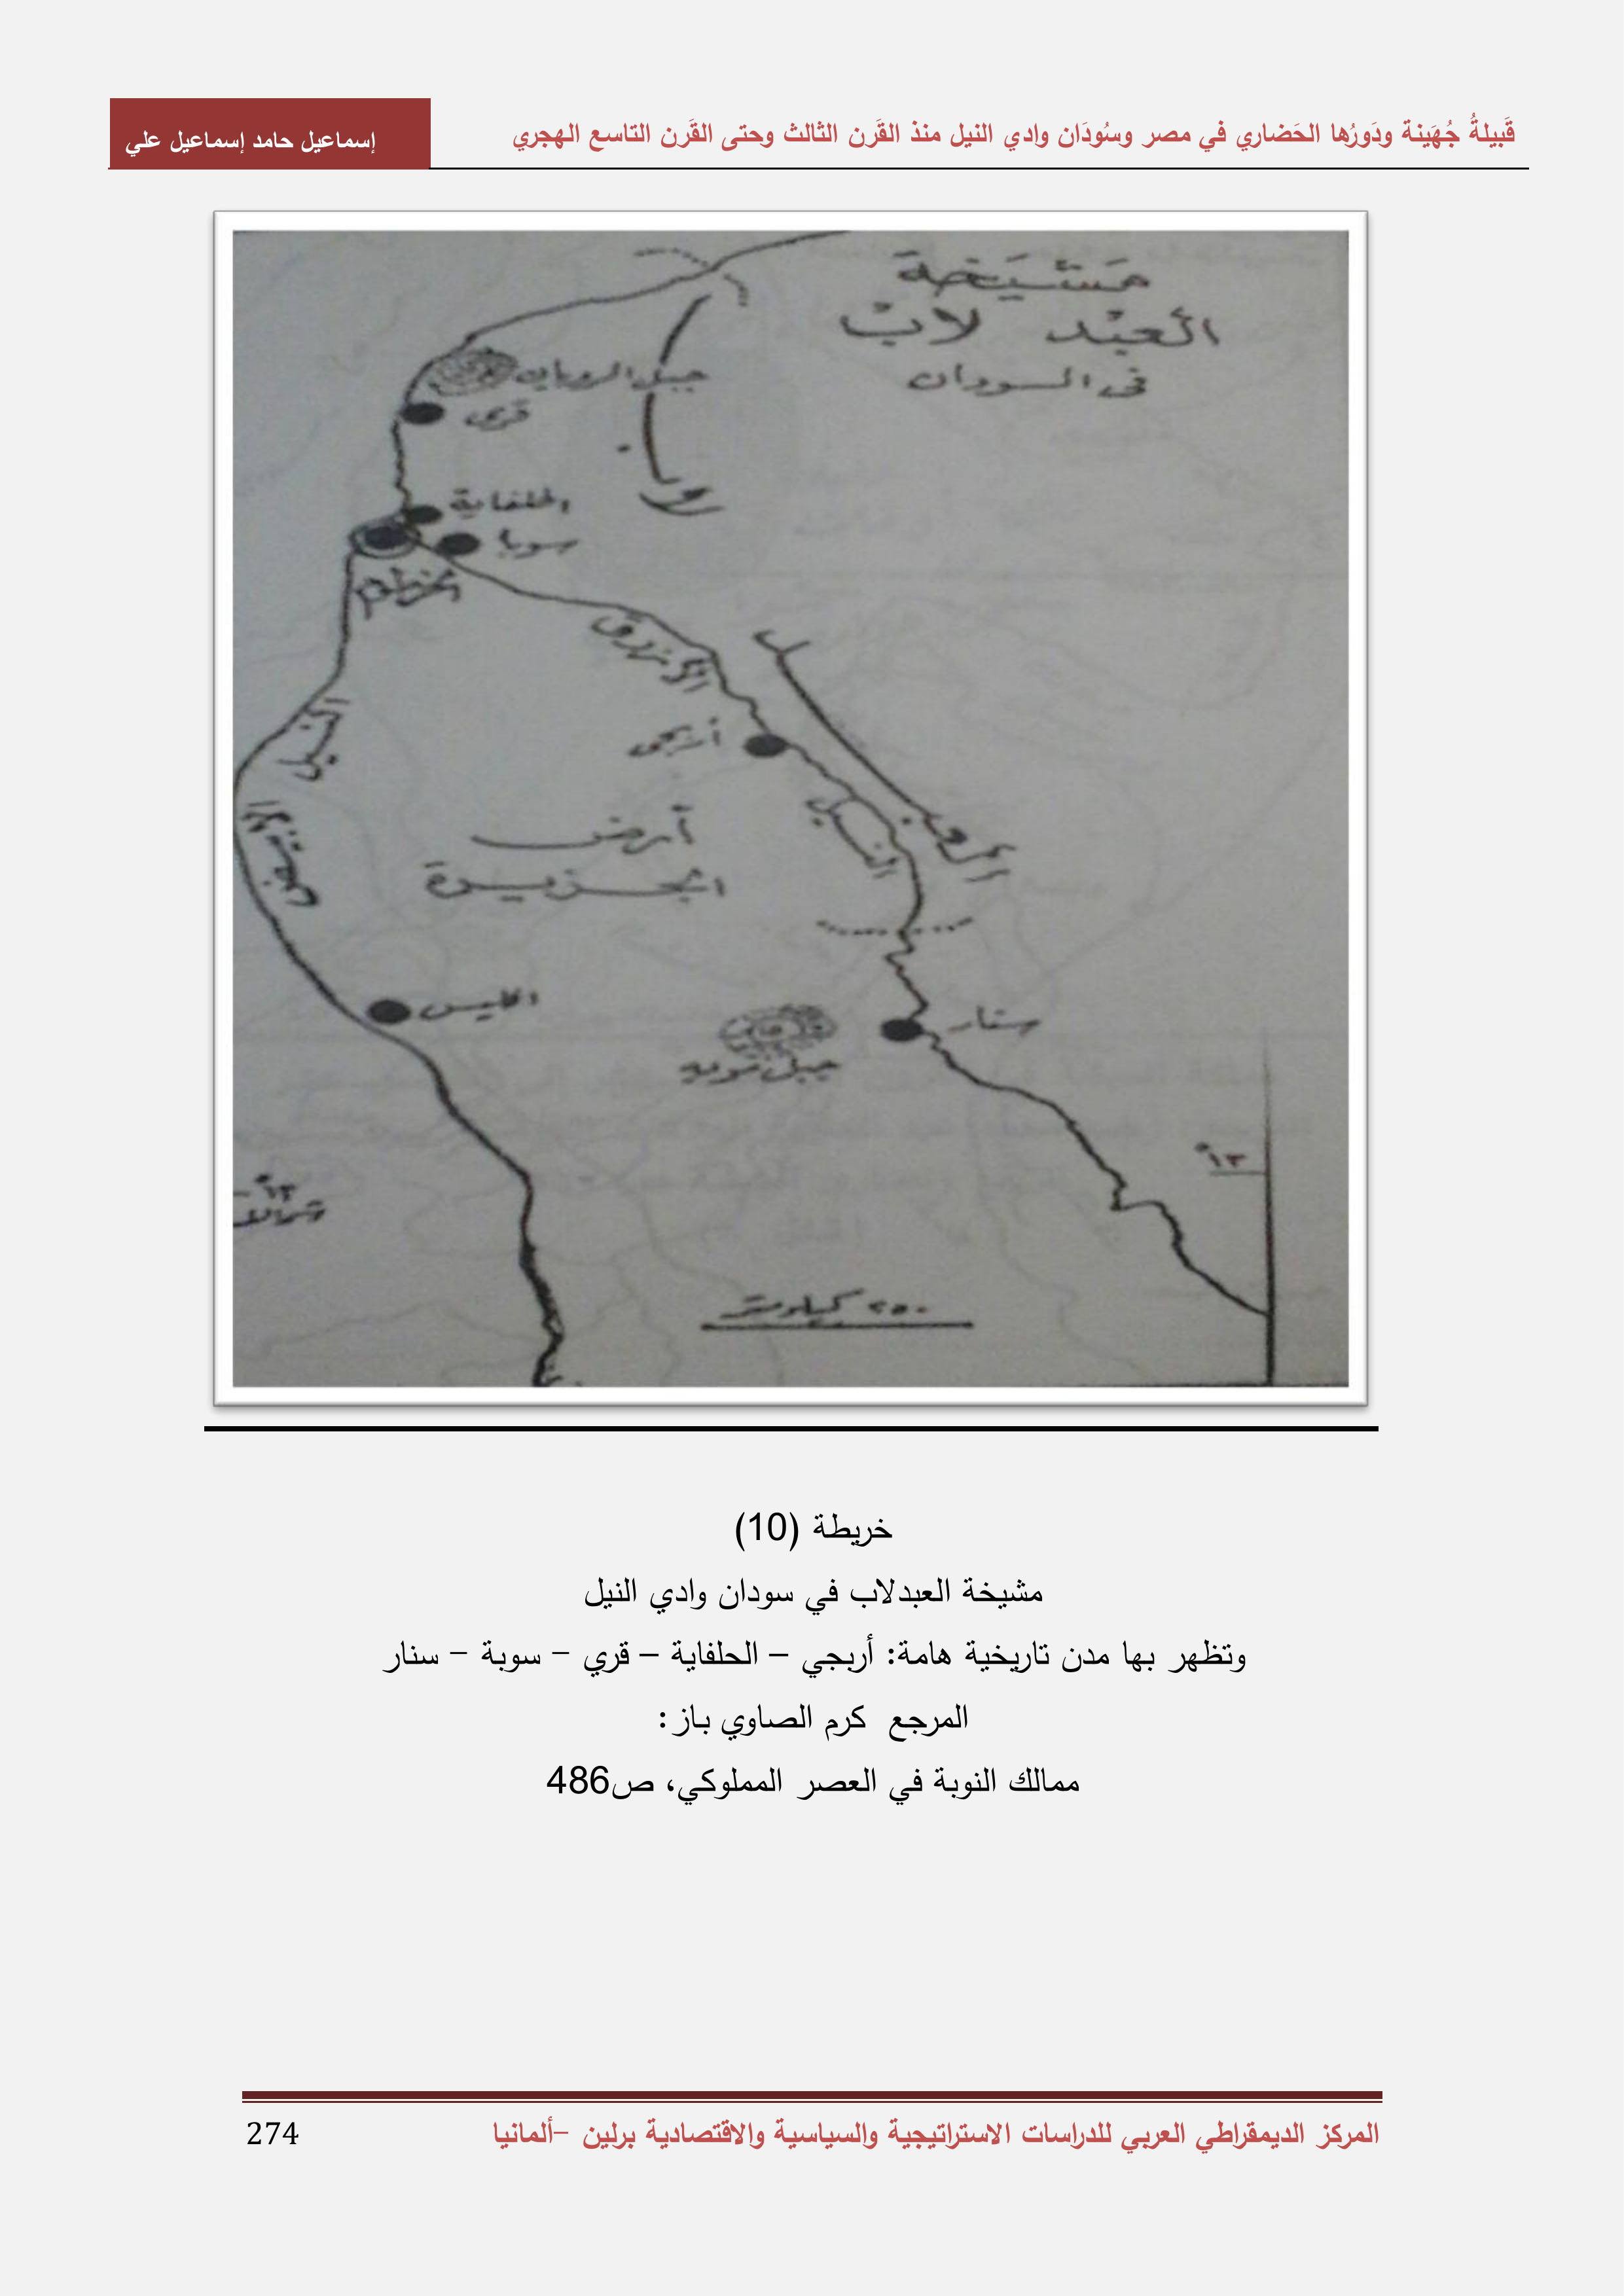 قَبيلةُ جُهَينة ودَورُها الحَضاري في مصر وسُودَان وادي النيل منذ القَرن الثالث وحتى القَرن التاسع الهجري
إسماعيل حامد إسماعيل علي
مَشيَخة
العبْد لابْ
فى السودان
جبل الرويان
قرى
الحلفاية
سوبا
الخرطوم
الأزرق
النيل
أربجى
النيل
الأبيض
أرض
الجزيرة
اعليس
سنار
جبل مويه
١٣°
١٣°
شمالا
٢٥٠ كيلومتر
خريطة (10)
مشيخة العبدلاب في سودان وادي النيل
وتظهر بها مدن تاريخية هامة: أربجي – الحلفاية – قري – سوبة – سنار
المرجع كرم الصاوي باز:
ممالك النوبة في العصر المملوكي، ص486
المركز الديمقراطي العربي للدراسات الاستراتيجية والسياسية والاقتصادية برلين –ألمانيا
274